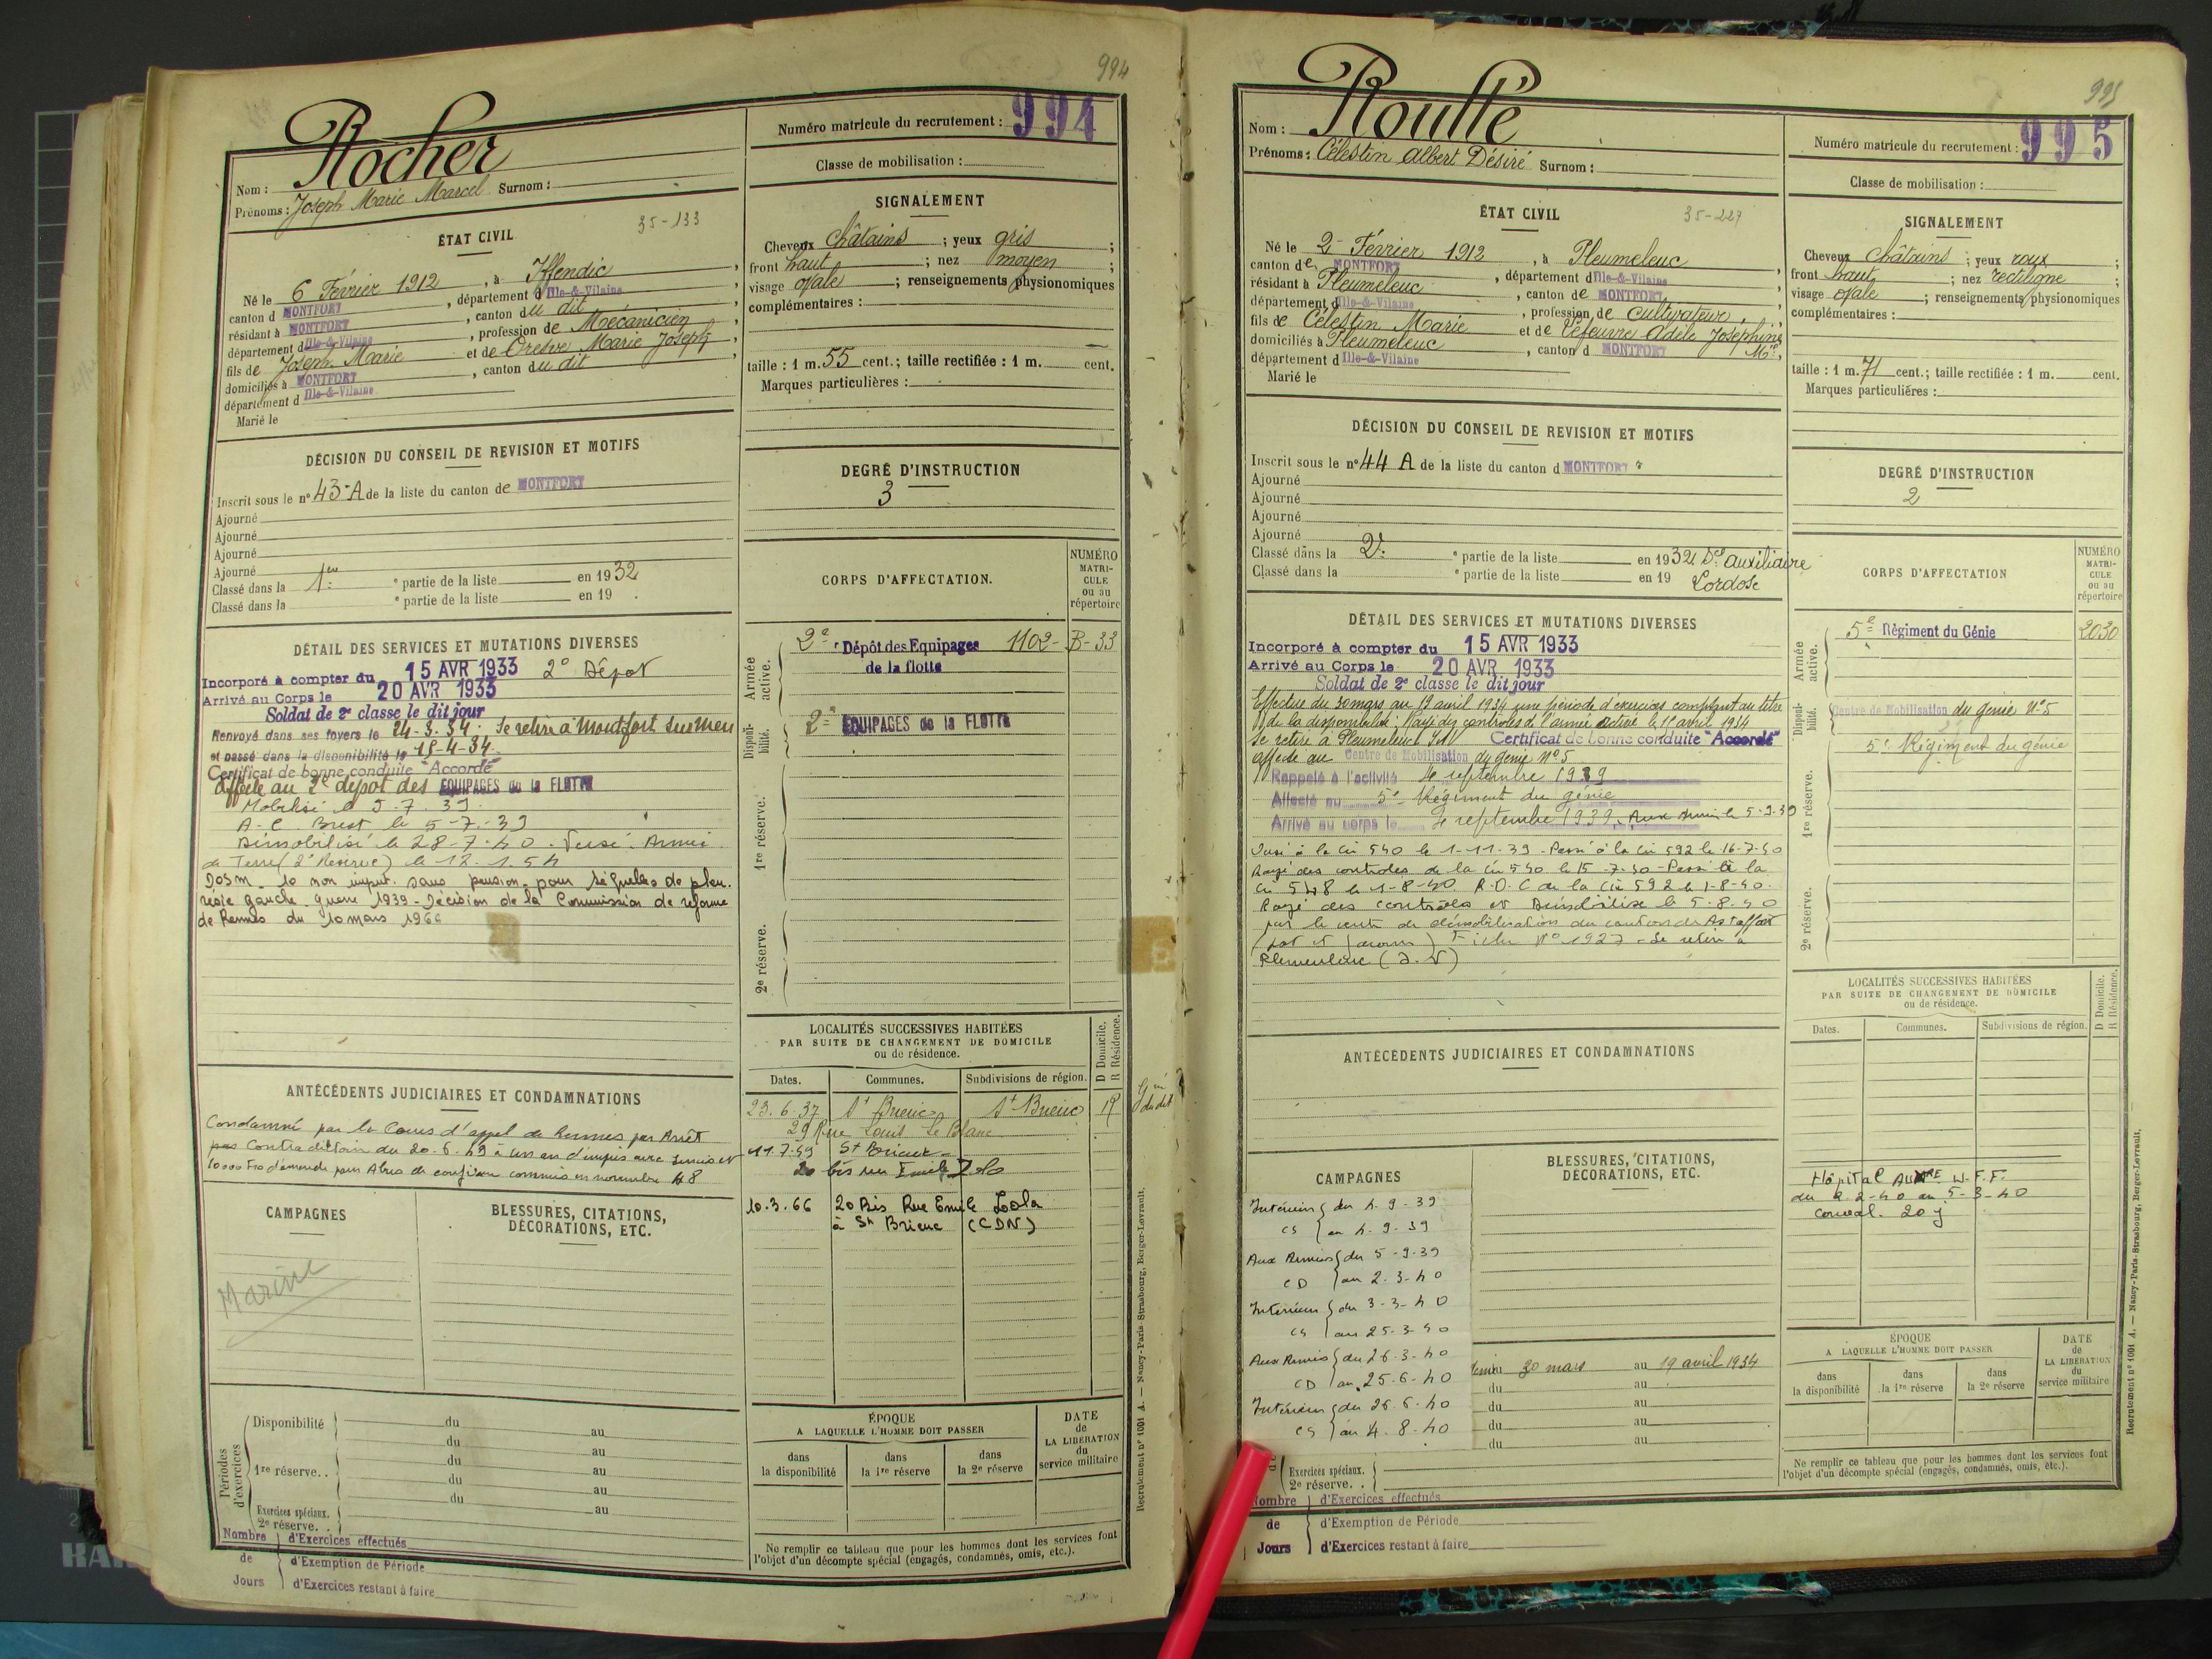 994
Rocher
Nom :
Prénoms : Joseph Marie Marcel Surnom :
Numéro matricule du recrutement : 994
Classe de mobilisation :
35-133
ÉTAT CIVIL
Né le 6 Février 1912, à Iffendic,
canton d MONTFORT, département d Ille-&-Vilaine
résidant à MONTFORT, canton du dit
département d Ille-&-Vilaine, profession de Mécanicien,
fils de Joseph Marie et de Oresve Marie Joseph
domiciliés à MONTFORT, canton du dit,
département d Ille-&-Vilaine
Marié le
SIGNALEMENT
Cheveux châtains ; yeux gris ;
front haut ; nez moyen ;
visage ovale ; renseignements physionomiques
complémentaires :
taille : 1 m. 55 cent.; taille rectifiée : 1 m. cent.
Marques particulières :
DÉCISION DU CONSEIL DE REVISION ET MOTIFS
Inscrit sous le n° 43-A de la liste du canton de MONTFORT
Ajourné
Ajourné
Ajourné
Ajourné
Classé dans la 1ère partie de la liste en 1932
Classé dans la e partie de la liste en 19 .
DEGRÉ D'INSTRUCTION
3
DÉTAIL DES SERVICES ET MUTATIONS DIVERSES
Incorporé à compter du 15 AVR 1933 2e Dépot
Arrivé au Corps le 20 AVR 1933
Soldat de 2e classe le dit jour
Renvoyé dans ses foyers le 24-3-34. Se retire à Montfort sur Meu
et passé dans la disponibilité le 15-4-34.
Certificat de bonne conduite "Accordé"
Affecté au 2e dépot des EQUIPAGES de la FLOTTE
Mobilisé le 5.7.39.
A.C. Brest le 5-7-39
Démobilisé le 28-7-40. Versé Armée
de Terre (2e Réserve) le 12.1.54
DOSM. 10 non imput. sans pension pour séquelles de pleu-
résie gauche guerre 1939 - Décision de la Commission de réforme
de Rennes du 10 mars 1966
CORPS D'AFFECTATION.
NUMÉRO MATRI-CULE ou au répertoire
Armée active.
2e Dépôt des Equipages de la flotte 1102-B-33
Disponi-bilité.
2e EQUIPAGES de la FLOTTE
1re réserve.
2e réserve.
ANTÉCÉDENTS JUDICIAIRES ET CONDAMNATIONS
Condamné par la Cours d'appel de Rennes par Arrêt
pas Contradictoire du 20.6.49 à un an d'empris avec sursis et
10000 Frs d'amende pour Abus de confiance commis en novembre 48
LOCALITÉS SUCCESSIVES HABITÉES
PAR SUITE DE CHANGEMENT DE DOMICILE
ou de résidence.
D Domicile. R Résidence.
Dates. Communes. Subdivisions de région.
23.6.37 St Brieuc St Brieuc R
29 Rue Louis Le Blanc
11.7.59 St Brieuc
20 bis rue Emile Zola
10.3.66 20 Bis Rue Emile Zola
à St Brieuc (CDN)
CAMPAGNES
Marine
BLESSURES, CITATIONS,
DÉCORATIONS, ETC.
Périodes d'exercices
Disponibilité du au
du au
1re réserve. . du au
du au
du au
Exercices spéciaux.
2e réserve. .
Nombre de Jours
d'Exercices effectués
d'Exemption de Période
d'Exercices restant à faire
ÉPOQUE
A LAQUELLE L'HOMME DOIT PASSER
dans la disponibilité
dans la 1re réserve
dans la 2e réserve
DATE de LA LIBÉRATION du service militaire
Ne remplir ce tableau que pour les hommes dont les services font
l'objet d'un décompte spécial (engagés, condamnés, omis, etc.).
Recrutement n° 1001 A. — Nancy-Paris-Strasbourg, Berger-Levrault.
995
Nom : Roullé
Prénoms : Célestin Albert Désiré Surnom :
Numéro matricule du recrutement : 995
Classe de mobilisation :
35-227
ÉTAT CIVIL
Né le 2 Février 1912, à Pleumeleuc
canton de MONTFORT, département d Ille-&-Vilaine
résidant à Pleumeleuc, canton de MONTFORT,
département d Ille-&-Vilaine, profession de cultivateur,
fils de Célestin Marie et de Lefeuvre Adèle Joséphine Mie
domiciliés à Pleumeleuc, canton d MONTFORT,
département d Ille-&-Vilaine
Marié le
SIGNALEMENT
Cheveux châtains ; yeux roux ;
front haut ; nez rectiligne ;
visage ovale ; renseignements physionomiques
complémentaires :
taille : 1 m. 71 cent.; taille rectifiée : 1 m. cent.
Marques particulières :
DÉCISION DU CONSEIL DE REVISION ET MOTIFS
Inscrit sous le n° 44 A de la liste du canton d MONTFORT
Ajourné
Ajourné
Ajourné
Ajourné
Classé dans la 2e partie de la liste en 1932 Sce auxiliaire
Classé dans la e partie de la liste en 19 Lordose
DEGRÉ D'INSTRUCTION
2
DÉTAIL DES SERVICES ET MUTATIONS DIVERSES
Incorporé à compter du 15 AVR 1933
Arrivé au Corps le 20 AVR 1933
Soldat de 2e classe le dit jour
Effectue du 30 mars au 19 avril 1934 une période d'exercices comptant au titre
de la disponibilité. Rayé des contrôles de l'armée active le 1er avril 1934
Se retire à Pleumeleuc I&V Certificat de bonne conduite "Accordé"
affecté au Centre de Mobilisation du génie N°5
Rappelé à l'activité le septembre 1939
Affecté au 5e Régiment du génie
Arrivé au corps le 4 septembre 1939. Aux Armées le 5-9-39
Passé à la Cie 540 le 1-11-39 - Passé à la Cie 592 le 16-7-40
Rayé des contrôles de la Cie 540 le 15-7-40 - Passé à la
Cie 548 le 1-8-40 R.D.C de la Cie 592 le 1-8-40.
Rayé des contrôles et Démobilisé le 5-8-40
par le centre de démobilisation du canton de Astaffort
(Lot et Garonne) Fiche N° 1927 - Se retire à
Pleumeleuc (I.V)
CORPS D'AFFECTATION
NUMÉRO MATRI-CULE ou au répertoire
Armée active.
5e Régiment du Génie 2030
Disponi-bilité.
Centre de Mobilisation du génie N°5
5e Régiment du génie
1re réserve.
2e réserve.
ANTÉCÉDENTS JUDICIAIRES ET CONDAMNATIONS
LOCALITÉS SUCCESSIVES HABITÉES
PAR SUITE DE CHANGEMENT DE DOMICILE
ou de résidence.
D Domicile. R Résidence.
Dates. Communes. Subdivisions de région.
Hôpital W.F.F.
au 5-3-40
Conval. 20 j
CAMPAGNES
Intérieur { du 4.9.39
CS { au 4.9.39
Aux Armées { du 5-9-39
CD { au 2.3.40
Intérieur { du 3-3-40
CS { au 25.3.40
Aux Armées { du 26.3.40
CD { au 25.6.40
Intérieur { du 26.6.40
CS { au 4.8.40
BLESSURES, CITATIONS,
DÉCORATIONS, ETC.
30 mars au 19 avril 1934
du au
du au
du au
du au
Exercices spéciaux.
2e réserve. .
Nombre de Jours
d'Exercices effectués
d'Exemption de Période
d'Exercices restant à faire
ÉPOQUE
A LAQUELLE L'HOMME DOIT PASSER
dans la disponibilité
dans la 1re réserve
dans la 2e réserve
DATE de LA LIBÉRATION du service militaire
Ne remplir ce tableau que pour les hommes dont les services font
l'objet d'un décompte spécial (engagés, condamnés, omis, etc.).
Recrutement n° 1001 A. — Nancy-Paris-Strasbourg, Berger-Levrault.